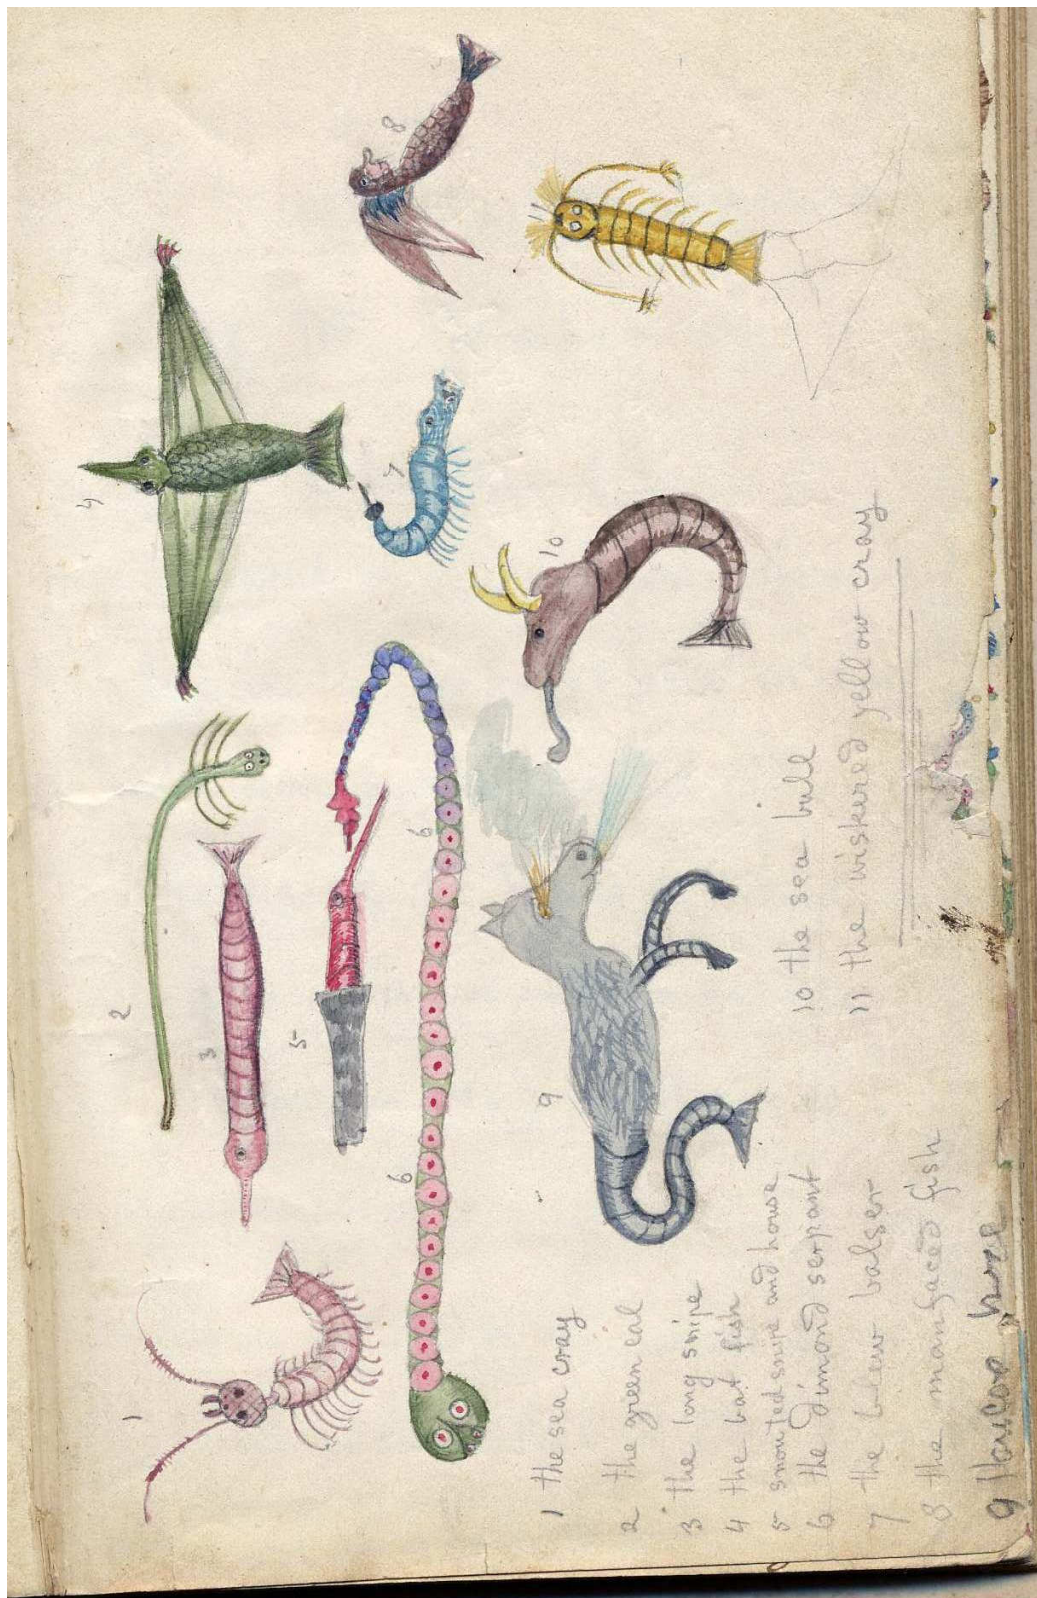 1
2
3
4
5
6
6
7
8
9
10
11
1 the sea cray
2 the green eal
3 the long snipe
4 the bat fish
5 snouted snipe and house
6 the dimond serpant
7 the blew balser
8 the man faced fish
9
10 the sea bull
11 the wiskered yellow cray